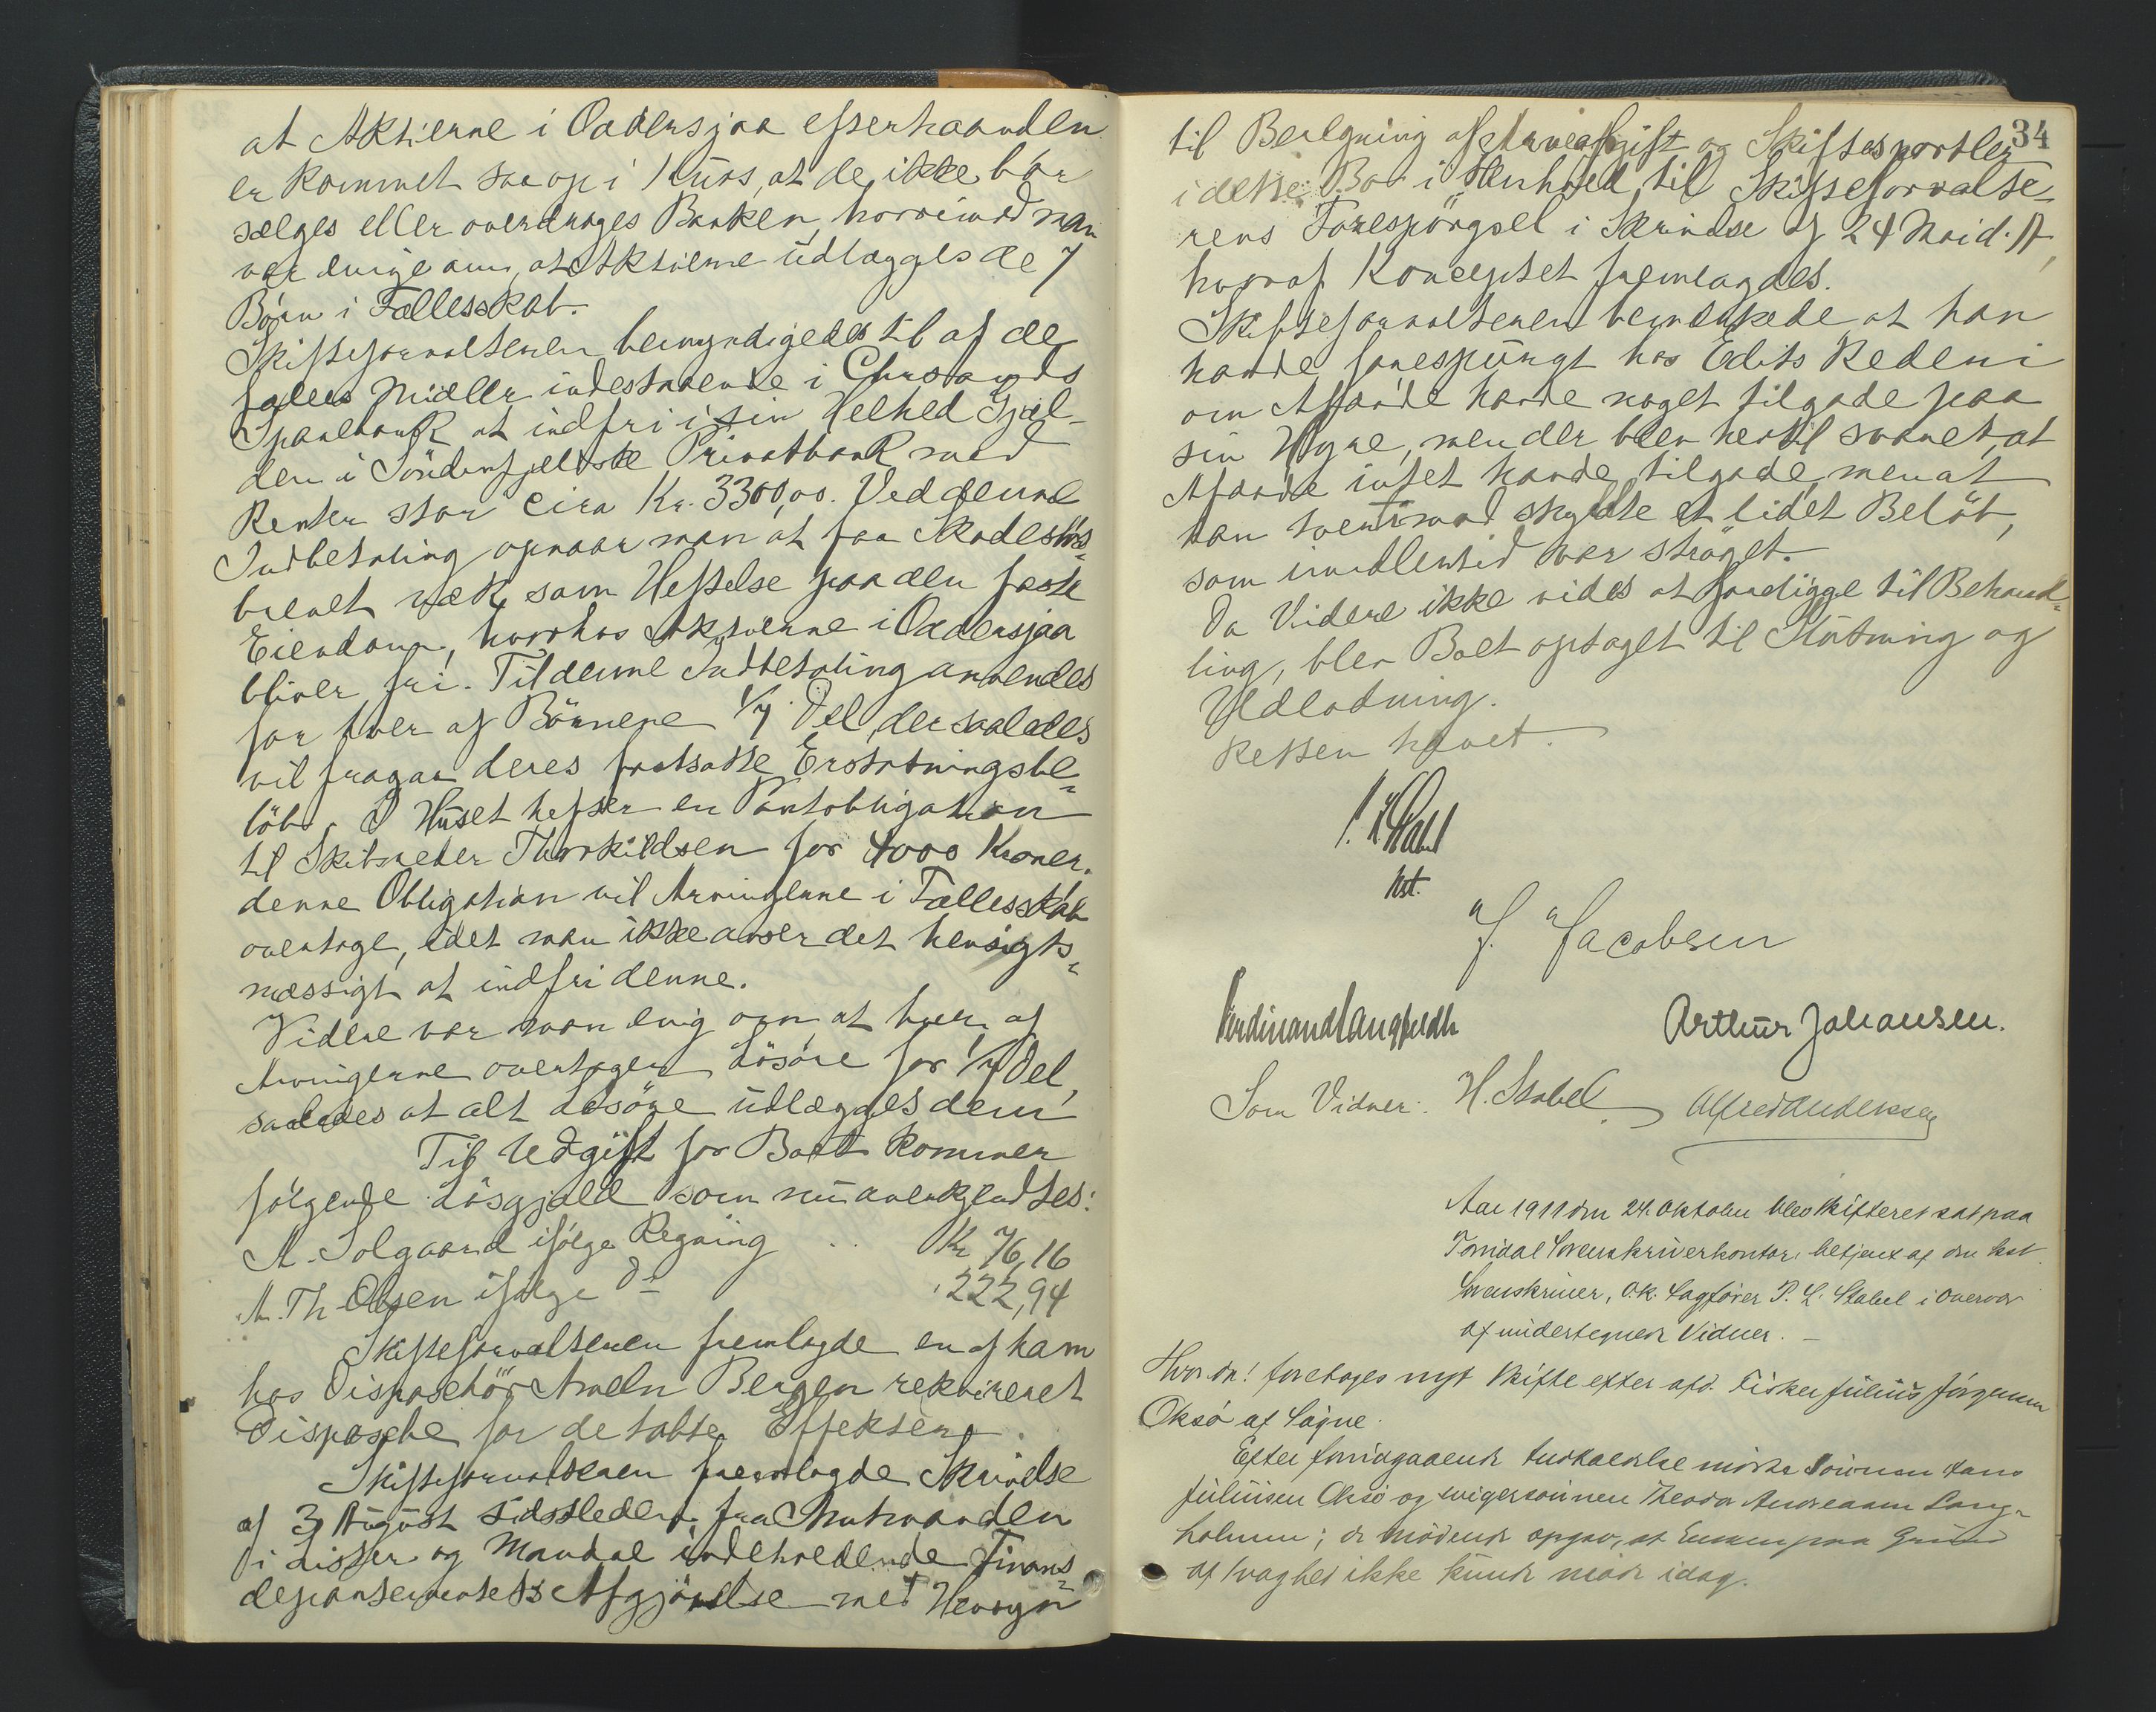 at Aktierne i Oddersjaa efterhaanden
er kommet saa op i Kurs, at de ikke bör
sælges eller overdrages Banken, hvorimod man
var enige om, at Aktierne udlægges de 7
Börn i Fællesskab.
Skifteforvalteren bemyndigedes til af de
fælles Midler indestaaende i Chrsands
Sparebank at indfri i sin Helhed Gjæl-
den i Söndenfjeldske Privatbank med
Renter stor circa Kr. 3300,00. Ved denne
Indbetaling opnaar man at faa Skadeslös-
brevet væk som Heftelse paa den faste
Eiendom, hvorhos Aktierne i Oddersjaa
bliver fri. Til denne Indbetaling anvendes
for hver af Börnene 1/7 Del, der saaledes
vil fragaa deres fastsatte Erstatningsbe-
löb. I Huset hefter en Pantobligation
til Thorkildsen for 4000 Kroner.
denne Obligation vil Arvingerne i Fællesskab
overtage, idet man ikke anser det hensigts-
mæssigt at indfri denne.
Videre var man enig om at hver af
Arvingerne overtager Lösöre for 1/7 Del,
saaledes at alt Lösöre udlægges dem
Til Udgift for Boet kommer
fölgende Lösgjæld som nu anerkjendtes:
A. Solgaard ifölge Regning .. Kr 76,16
A. Th. Olsen ifölge do " 222,94
Skifteforvalteren fremlagde en af ham
hos Dispaschör Bergen rekvireret
Dispasche for de tabte Effekter.
Skifteforvalteren fremlagde Skrivelse
af 3 August sidstleden fra Amtmanden
i Lister og Mandal indeholdende Finans-
departementets Afgjörelse med Hensyn
34
til Beregning af Arveafgift og Skiftesportler
i dette Bo i Henhold til Skifteforvalte-
rens Forespörgsel i Skrivelse af 24 Mai d. A,
hvoraf Konceptet fremlagdes.
Skifteforvalteren bemærkede at han
havde forespurgt hos Edits Rederi
om Afdöde havde noget tilgode paa
sin Hyre, men der blev hertil svaret, at
Afdöde intet havde tilgode, men at
han tvertimod skyldte et lidet Belöb,
som imidlertid var ströget.
Da Videre ikke vides at foreligge til Behand-
ling, blev Boet optaget til Slutning og
Udlodning.
Retten hævet.
kst.
J. Jacobsen
Ferdinand Langfeldt
Arthur Johansen.
Som Vidner: H. Stabel Alfred Andersen
Aar 1911 den 24. Oktober blev Skifteret sat paa
Torridal Sorenskriverkontor, betjent af den kst
Sorenskriver, O.R. Sagförer P. L. Stabel i Overvær
af undertegnede Vidner. -
Hvor da! foretoges nyt Skifte efter afd. Fisker Julius Jörgensen
Oksö af Sögne.
Efter forudgaaende Indkaldelse mödte Sönnen Hans
Juliusen Oksö og Svigersönnen Theodor Andreasen Lang-
holmen; de mödende opgav, at Enken paa Grund
af Svaghed ikke kunde möde idag.